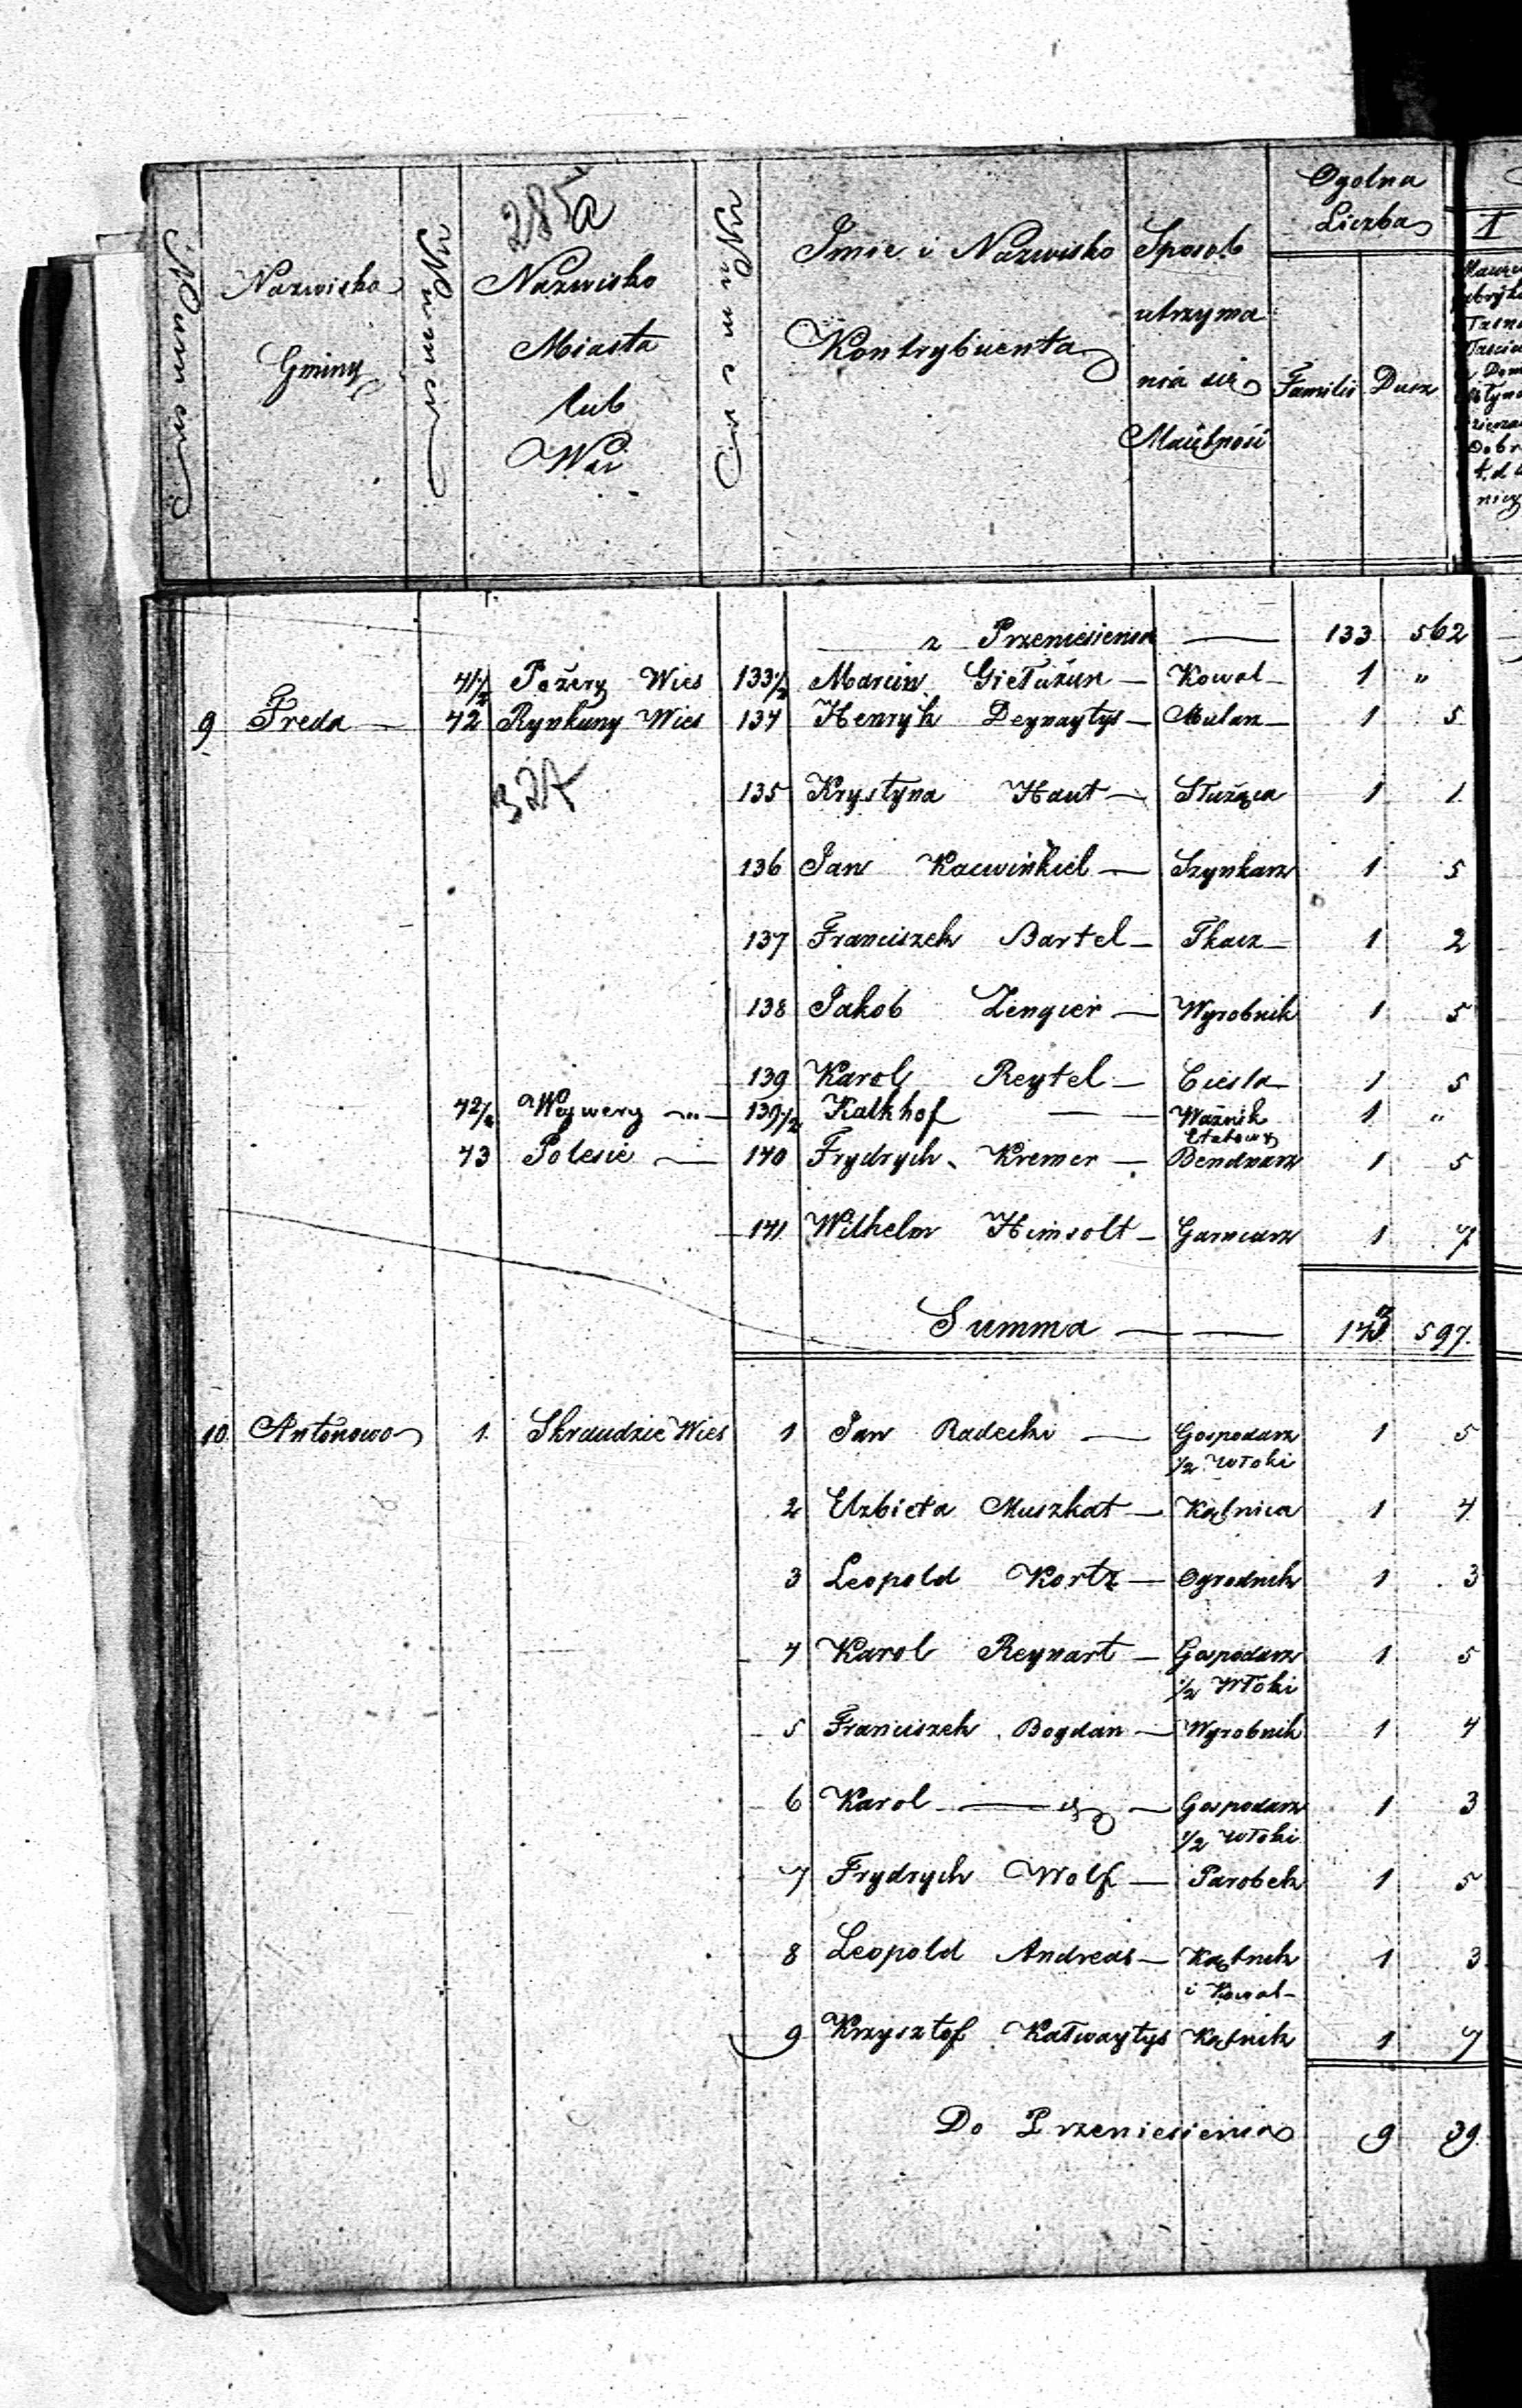 285a
Numer
Nazwisko Gminy
Numer
Nazwisko Miasta lub Wsi
Numer
Imie i Nazwisko Kontrybuenta
Sposob utrzyma nia sie Maiętność
Ogolna Liczba
Familii Dusz
1
z Przeniesienia — 133 562
41 1/2 Pożery Wies 133 1/2 Marcin Giełażun — Kowal — 1 "
9 Freda — 42 Rynkuny Wies 134 Henryk Deynaytys — Mular — 1 5
327
135 Krystyna Haut — Służąca 1 1
136 Jan Kacwinkiel — Szynkarz 1 5
137 Franciszek Bartel — Tkacz — 1 2
138 Jakob Zengier — Wyrobnik 1 5
139 Karol Reytel — Ciesla 1 5
42 1/2 Woywery — 139 1/2 Kalkhof — Ważnik 1 "
43 Polesie — 140 Frydrych Kremer — Bendnarz 1 5
141 Wilhelm Heinsolt — Garncarz 1 7
Summa — — 143 597
10 Antonowo 1 Skraudzie Wies 1 Jan Radecki — Gospodarz 1 5
1/2 Włoki
2 Elzbieta Muszkat — Kątnica 1 4
3 Leopold Kortz — Ogrodnik 1 3
4 Karol Reynart — Gospodarz 1 5
1/2 Włoki
5 Franciszek Bogdan — Wyrobnik 1 4
6 Karol — Gospodarz 1 3
1/2 Włoki
7 Frydrych Wolf — Parobek 1 5
8 Leopold Andreas — Kątnik 1 3
i Kowal —
9 Krzysztof Katwaytys Kątnik 1 7
Do Przeniesienia 9 39